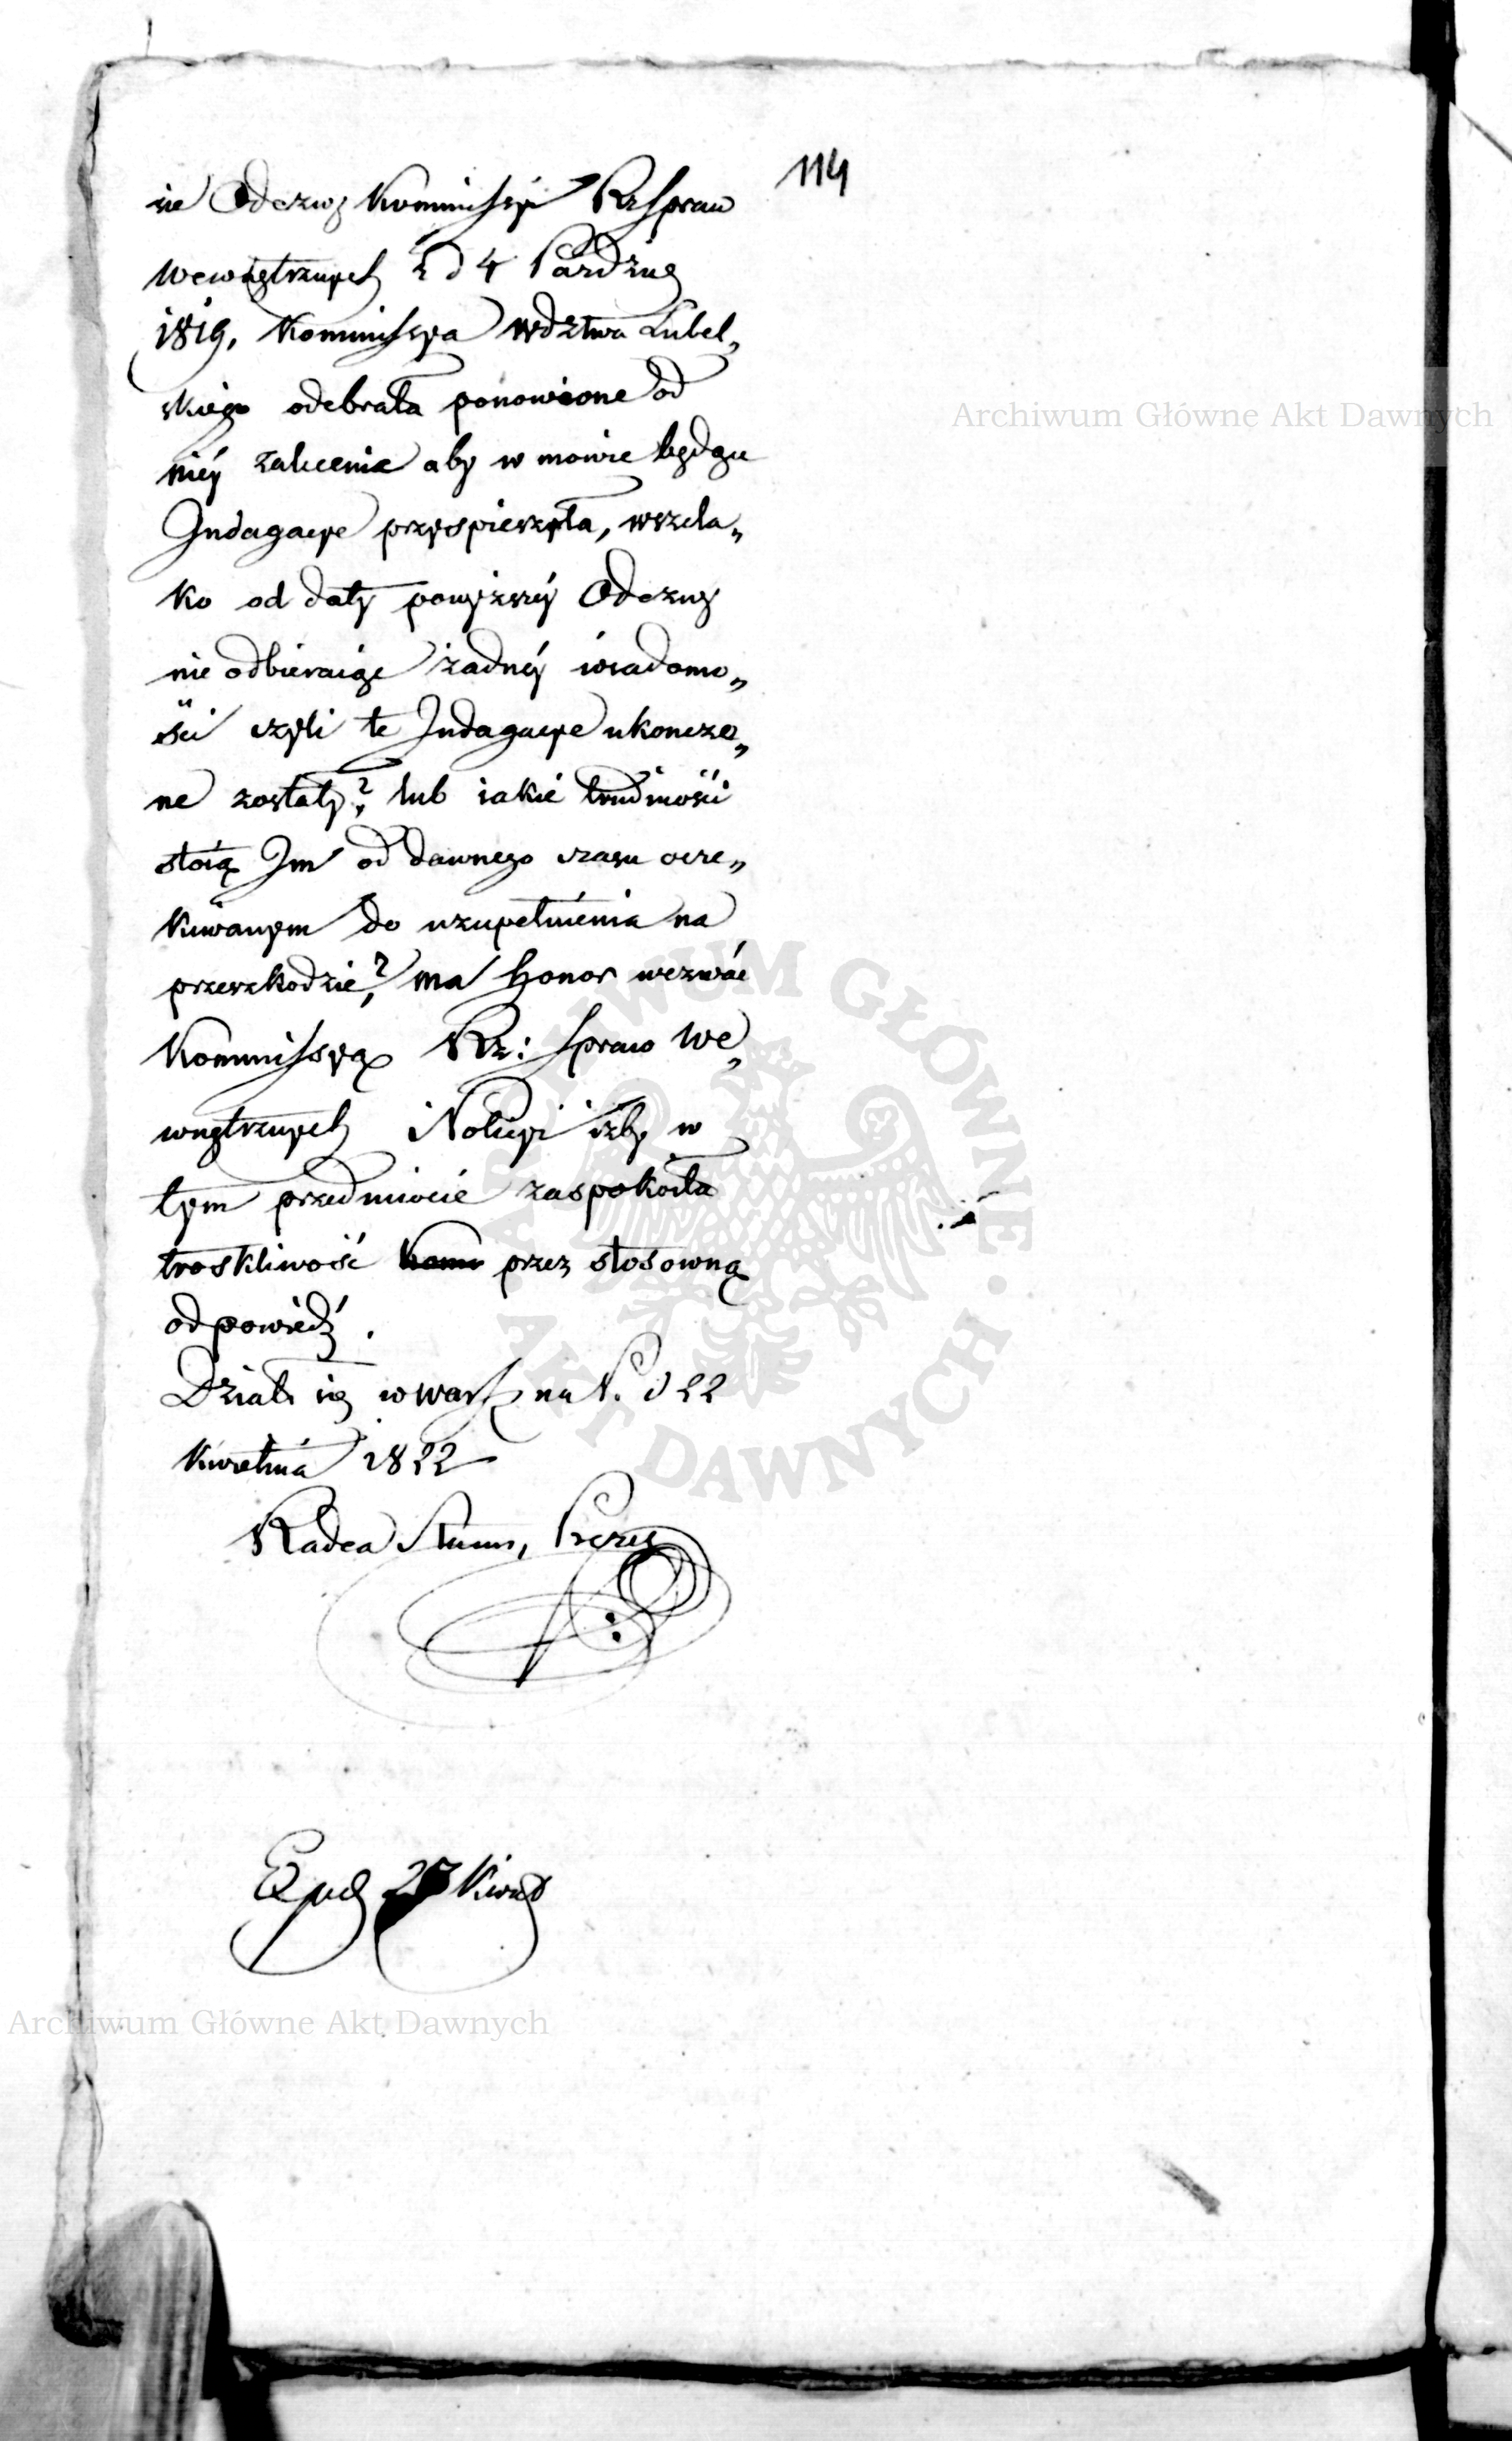 114
sie Odezwy Kommissyi Rz Spraw
wewnętrznych z d 4 Paździer
1819, Kommissya Wdztwa Lubel„
skiego odebrała ponowione od
niéy zalecenie aby w mowie będące
Indagacye przyspieszyła, wszela„
ko od daty powyższéy Odezwy
nie odbieraiąc żadnéy wiadomo„
ści czyli te Indagacye ukończo„
ne zostały? lub iakie trudności
stoią Im od dawnego czasu ocze„
kiwanym do uzupełnienia na
przeszkodzie? ma honor wezwać
Kommissyą Rz: Spraw We„
wnętrznych i Policyi iżby w
tym przedmiocie zaspokoiła
troskliwość przez stosowną
odpowiedź.
Działo się w Warsz na P. d 22
Kwietnia 1822
Radca Stanu, Prezes
Exped 25 Kwiet
Archiwum Główne Akt Dawnych
ARCHIWUM GŁÓWNE
AKT DAWNYCH
Archiwum Główne Akt Dawnych